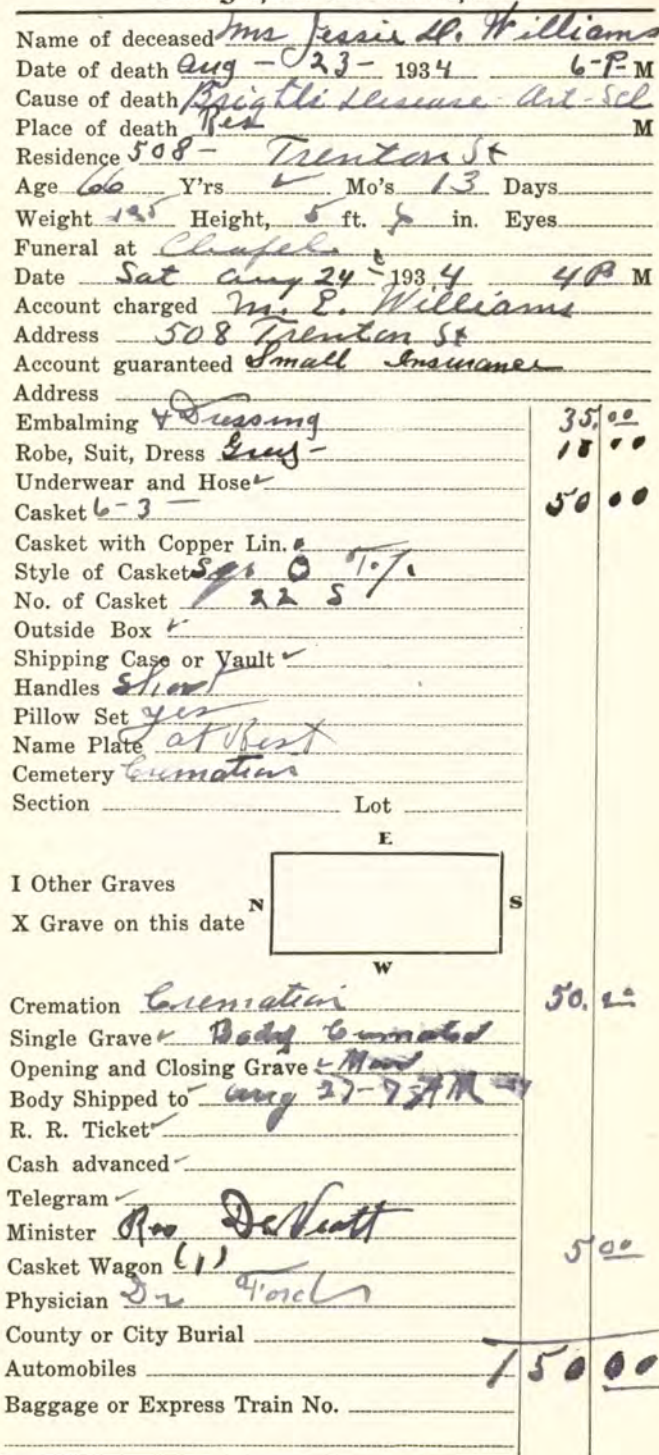 Name of deceased Mrs Jessie D. Williams
Date of death Aug - 23 - 1934 6-P- M
Cause of death Brights Disease - Art-Scl
Place of death Res M
Residence 508 - Trenton St
Age 66 Y'rs ✓ Mo's 13 Days
Weight 125 Height, 5 ft. in. Eyes
Funeral at Chapel
Date Sat Aug 24 1934 4 P M
Account charged M. E. Williams
Address 508 Trenton St
Account guaranteed Small Insurance
Address
Embalming & Dressing 35.00
Robe, Suit, Dress Grey - 10 00
Underwear and Hose ✓
Casket 6-3 - 50 00
Casket with Copper Lin.
Style of Casket O
No. of Casket 22 S
Outside Box ✓
Shipping Case or Vault ✓
Handles Short
Pillow Set yes
Name Plate at Rest
Cemetery Cremation
Section Lot
E
I Other Graves
N S
X Grave on this date
W
Cremation Cremation 50.00
Single Grave ✓ Body Cremated
Opening and Closing Grave ✓ Mon
Body Shipped to Aug 27-7-AM
R. R. Ticket ✓
Cash advanced ✓
Telegram ✓
Minister Rev
Casket Wagon (1) 5 00
Physician Dr Ford
County or City Burial
Automobiles 150 00
Baggage or Express Train No.